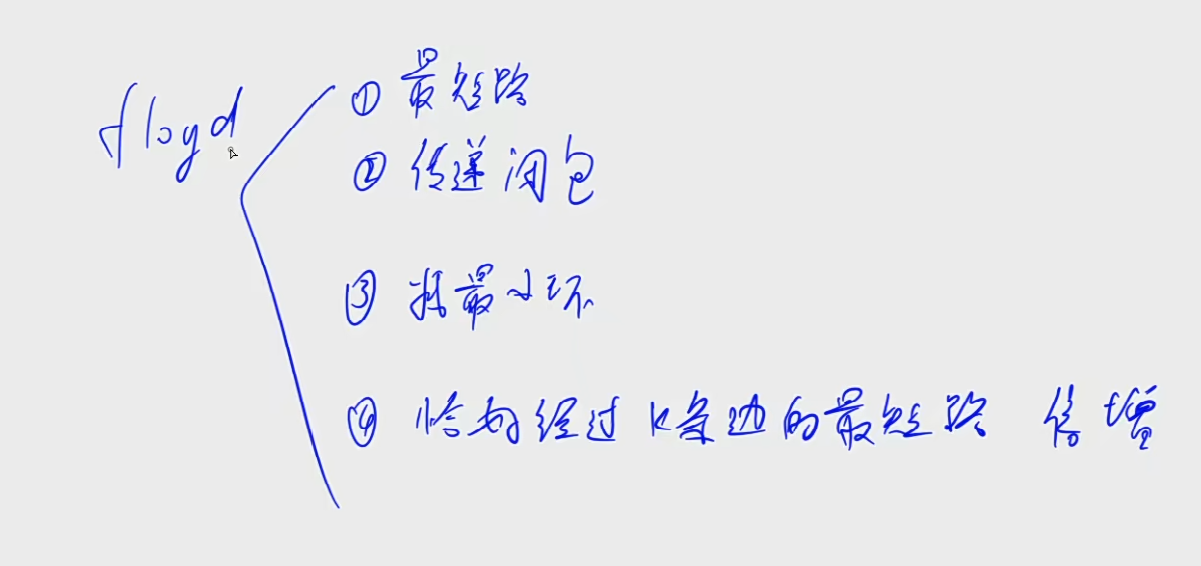 floyd
① 最短路
② 传递闭包
③ 找最小环
④ 恰好经过k条边的最短路 倍增